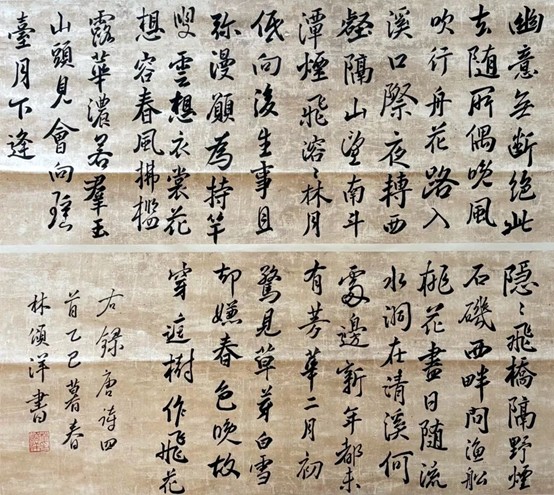 幽意無断絕此
去随所偶晚風
吹行舟花路入
溪口際夜轉西
壑隔山望南斗
潭煙飛溶〻林月
低向後生事且
弥漫願為持竿
叟雲想衣裳花
想容春風拂檻
露華濃若羣玉
山頭見會向瑤
臺月下逢
隱〻飛橋隔野煙
石磯西畔問漁船
桃花盡日随流
水洞在清溪何
處邊新年都未
有芳華二月初
驚見草芽白雪
却嫌春色晚故
穿庭樹作飛花
右錄唐诗四
首乙巳暮春
林颂洋書